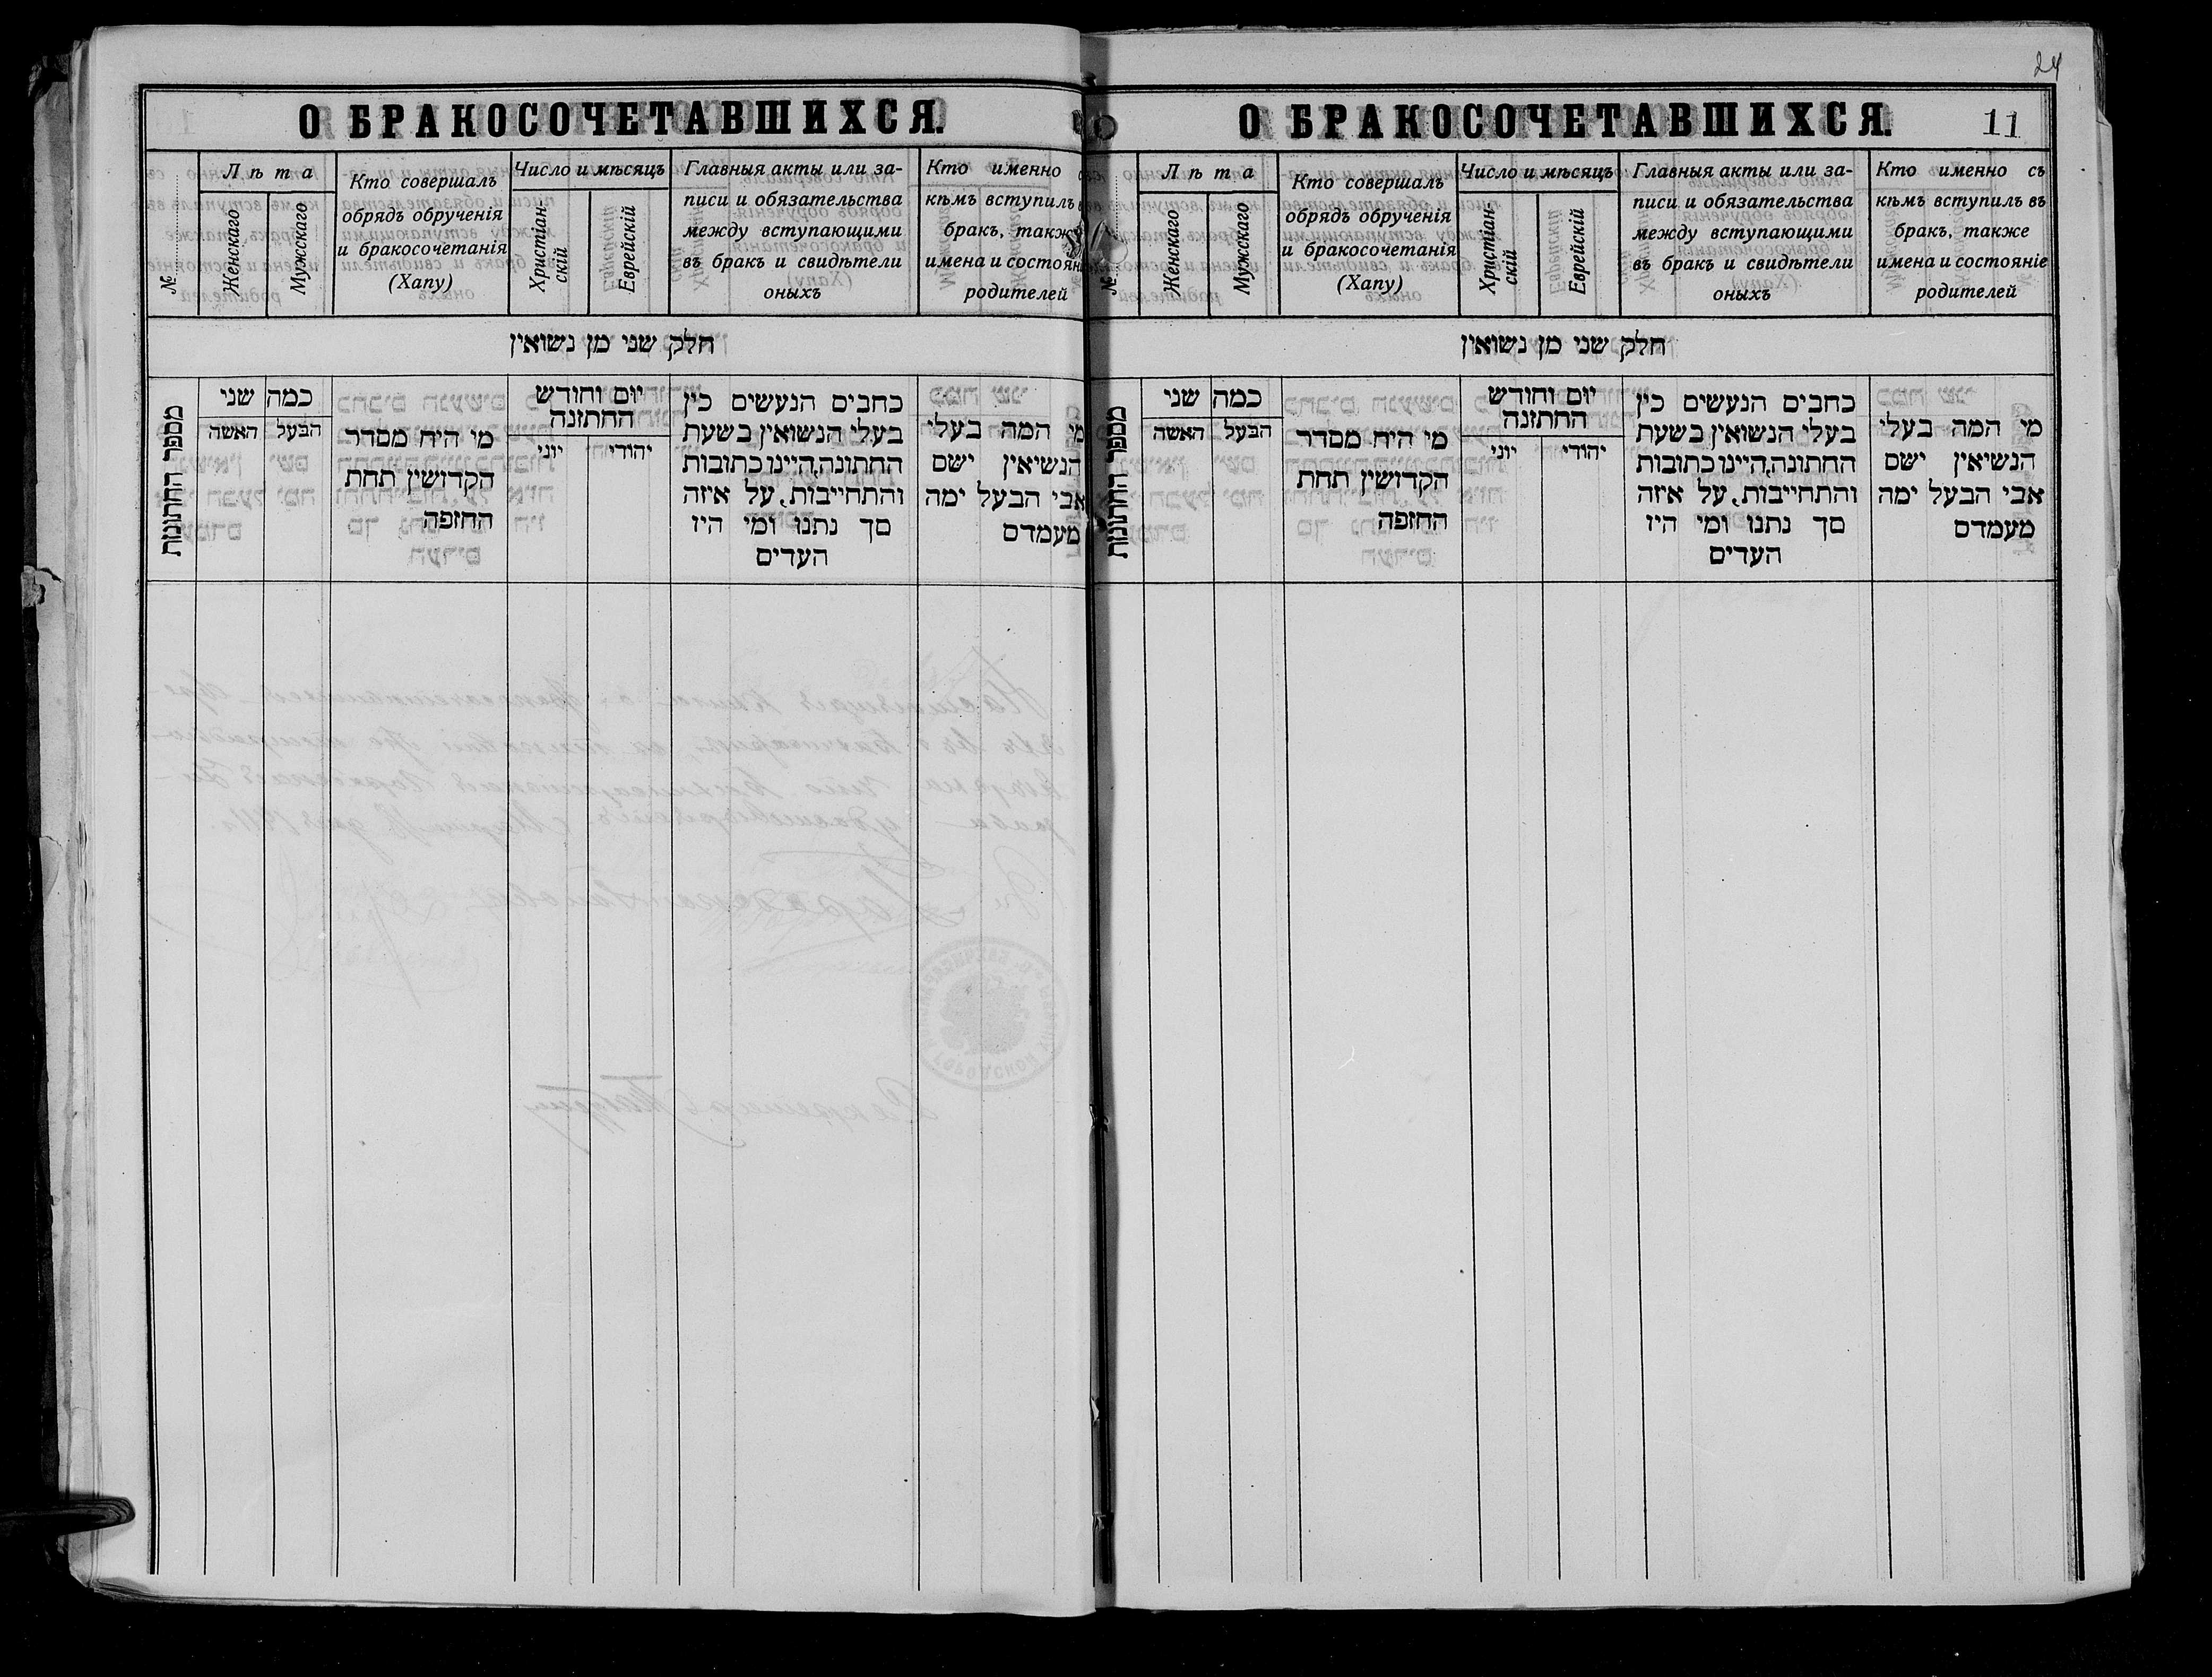 24
О БРАКОСОЧЕТАВШИХСЯ.
№
Лѣта
Женскаго
Мужскаго
Кто совершалъ
обрядъ обрученія
и бракосочетанія
(Хапу)
Число и мѣсяцъ
Христіан-
скій
Еврейскій
Главныя акты или за-
писи и обязательства
между вступающими
въ бракъ и свидѣтели
оныхъ
Кто именно
кѣмъ вступилъ
бракъ, также
имена и состоян
родителей
חלק שני מן נשואין
מספר החתונות
כמה שני
הבעל האשה
מי היה מסדר
הקדושין תחת
החופה
יום וחודש
החתונה
יהודי יוני
כחבים הנעשים כין
בעלי הנשואין בשעת
החתונה, היינו כתובות
והתחייבות, על איזה
סך נתנו ומי היו
העדים
מי המה בעלי
הנשיאין ישם
אבי הבעל ימה
מעמדם
О БРАКОСОЧЕТАВШИХСЯ. 11
№
Лѣта
Женскаго
Мужскаго
Кто совершалъ
обрядъ обрученія
и бракосочетанія
(Хапу)
Число и мѣсяцъ
Христіан-
скій
Еврейскій
Главныя акты или за-
писи и обязательства
между вступающими
въ бракъ и свидѣтели
оныхъ
Кто именно съ
кѣмъ вступилъ въ
бракъ, также
имена и состояніе
родителей
חלק שני מן נשואין
מספר החתונות
כמה שני
הבעל האשה
מי היה מסדר
הקדושין תחת
החופה
יום וחודש
החתונה
יהודי יוני
כחבים הנעשים כין
בעלי הנשואין בשעת
החתונה, היינו כתובות
והתחייבות, על איזה
סך נתנו ומי היו
העדים
מי המה בעלי
הנשיאין ישם
אבי הבעל ימה
מעמדם